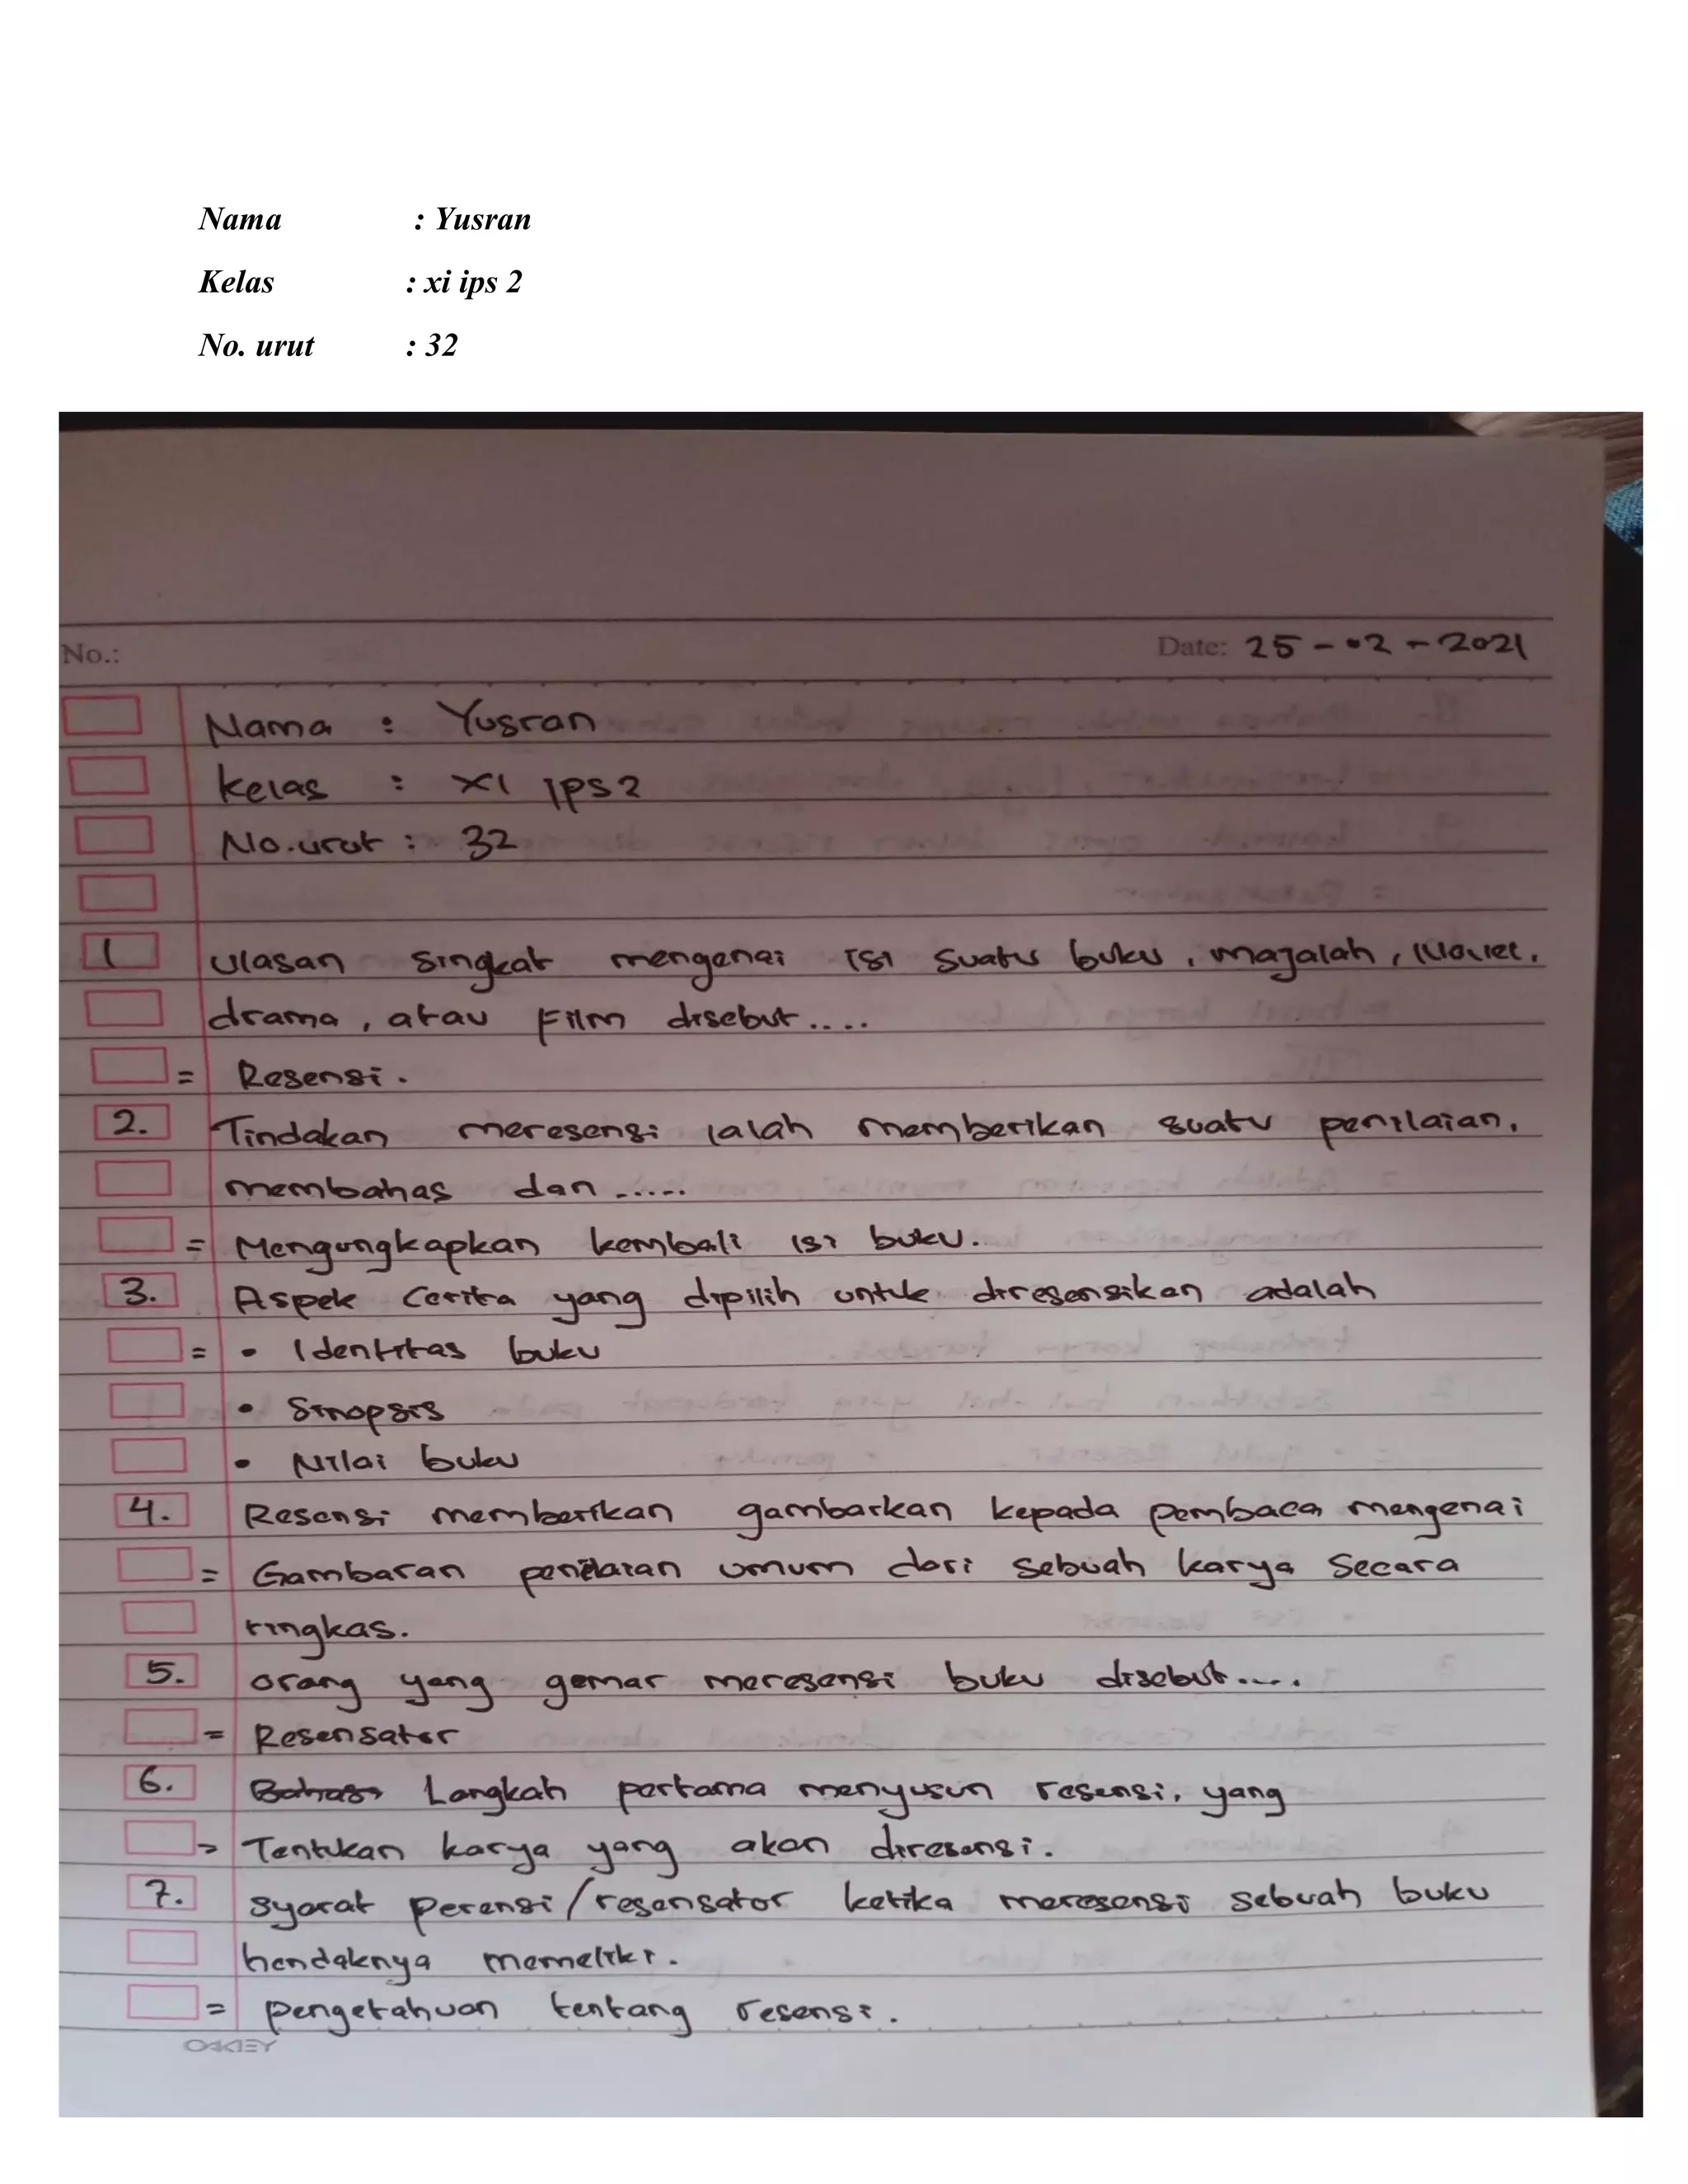 Nama : Yusran
Kelas : xi ips 2
No. urut : 32
No.: Date: 25-02-2021
Nama : Yusran
kelas : XI IPS 2
No.urut : 32
1 Ulasan singkat mengenai isi suatu buku, majalah, Novel,
drama, atau Film disebut....
= Resensi.
2. Tindakan meresensi ialah memberikan suatu penilaian,
membahas dan .....
= Mengungkapkan kembali isi buku.
3. Aspek Cerita yang dipilih untuk diresensikan adalah
= • Identitas buku
• Sinopsis
• Nilai buku
4. Resensi memberikan gambarkan kepada pembaca mengenai
= Gambaran penilaian umum dari sebuah karya secara
ringkas.
5. orang yang gemar meresensi buku disebut....
= Resensator
6. Bahasa Langkah pertama menyusun resensi, yang
= Tentukan karya yang akan diresensi.
7. syarat perensi/resensator ketika meresensi sebuah buku
hendaknya memeliki.
= pengetahuan tentang resensi.
OAKLEY